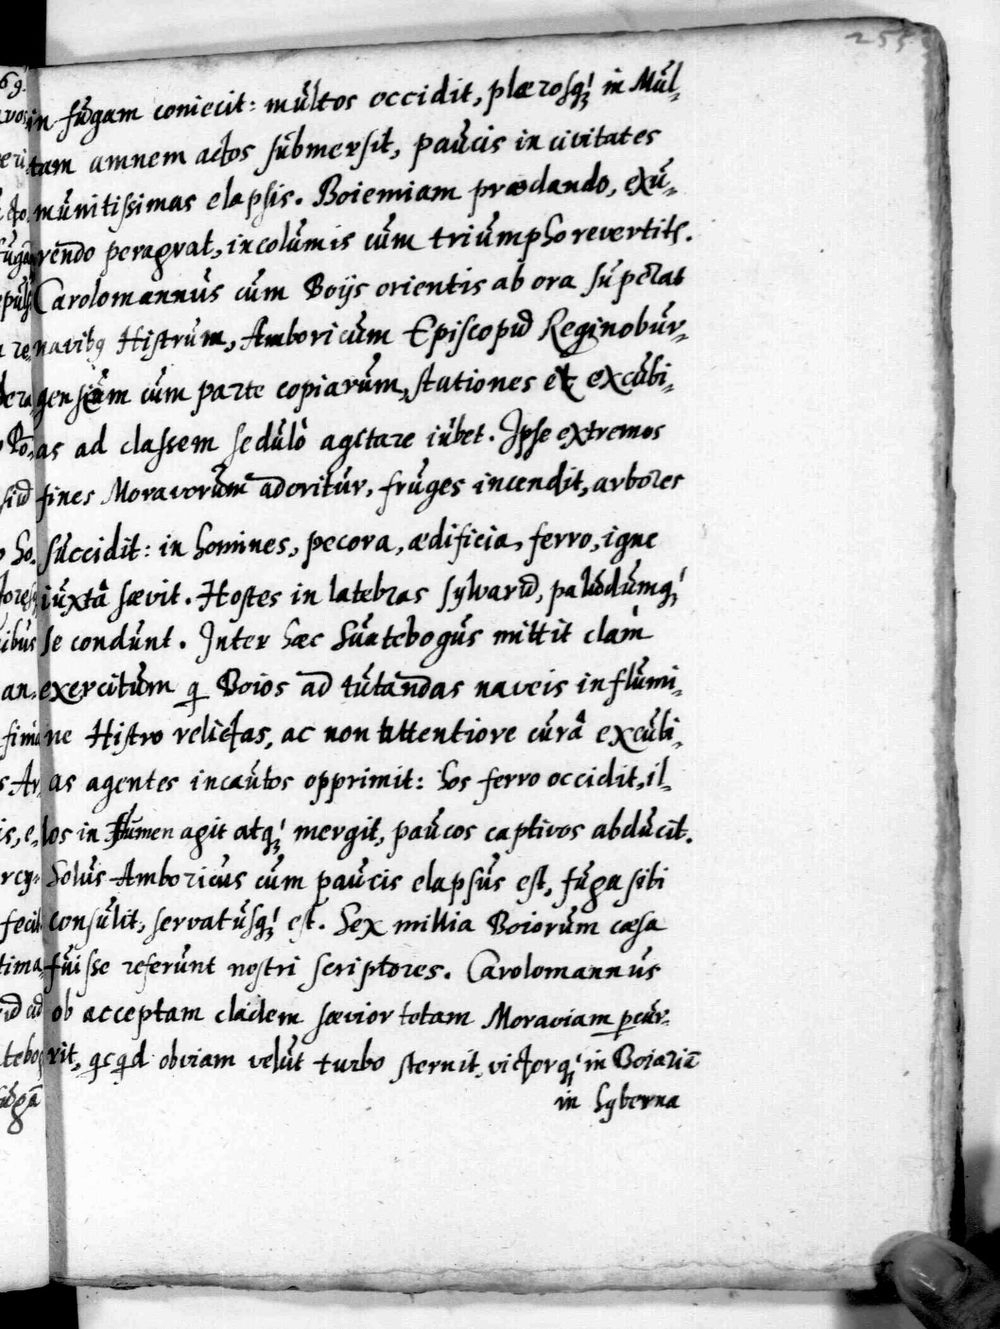 255
in fugam coniecit: multos occidit, plærosq́; in Mul-
tam amnem actos submersit, paucis in civitates
munitissimas elapsis. Boiemiam prædando, exu-
rendo peragrat, incolumis cum triumpho revertitr.
Carolomannus cum Boijs orientis ab ora superat
navibq Histrum, Amboricum Episcopũ Reginobur-
gensium cum parte copiarum, stationes et excubi-
as ad classem sedulò agitare iubet. Ipse extremos
fines Moravorum adoritur, fruges incendit, arbores
succidit: in homines, pecora, ædificia, ferro, igne
iuxtà sævit. Hostes in latebras sylvarũ, paludumq́;
se condunt. Inter hæc Suatebogus mittit clam
exercitum q Boios ad tutandas naveis in flumi-
ne Histro relictas, ac non attentiore curâ excubi-
as agentes incautos opprimit: hos ferro occidit, il-
los in flumen agit atq́; mergit, paucos captivos abducit.
Solus Amboricus cum paucis elapsus est, fuga sibi
consulit, servatusq́; est. Sex millia Boiorum cæsa
fuisse referunt nostri scriptores. Carolomannus
ob acceptam cladem sævior totam Moraviam pcur-
rit, qcqd obviam velut turbo sternit, victorq́; in Boiariã
in hyberna